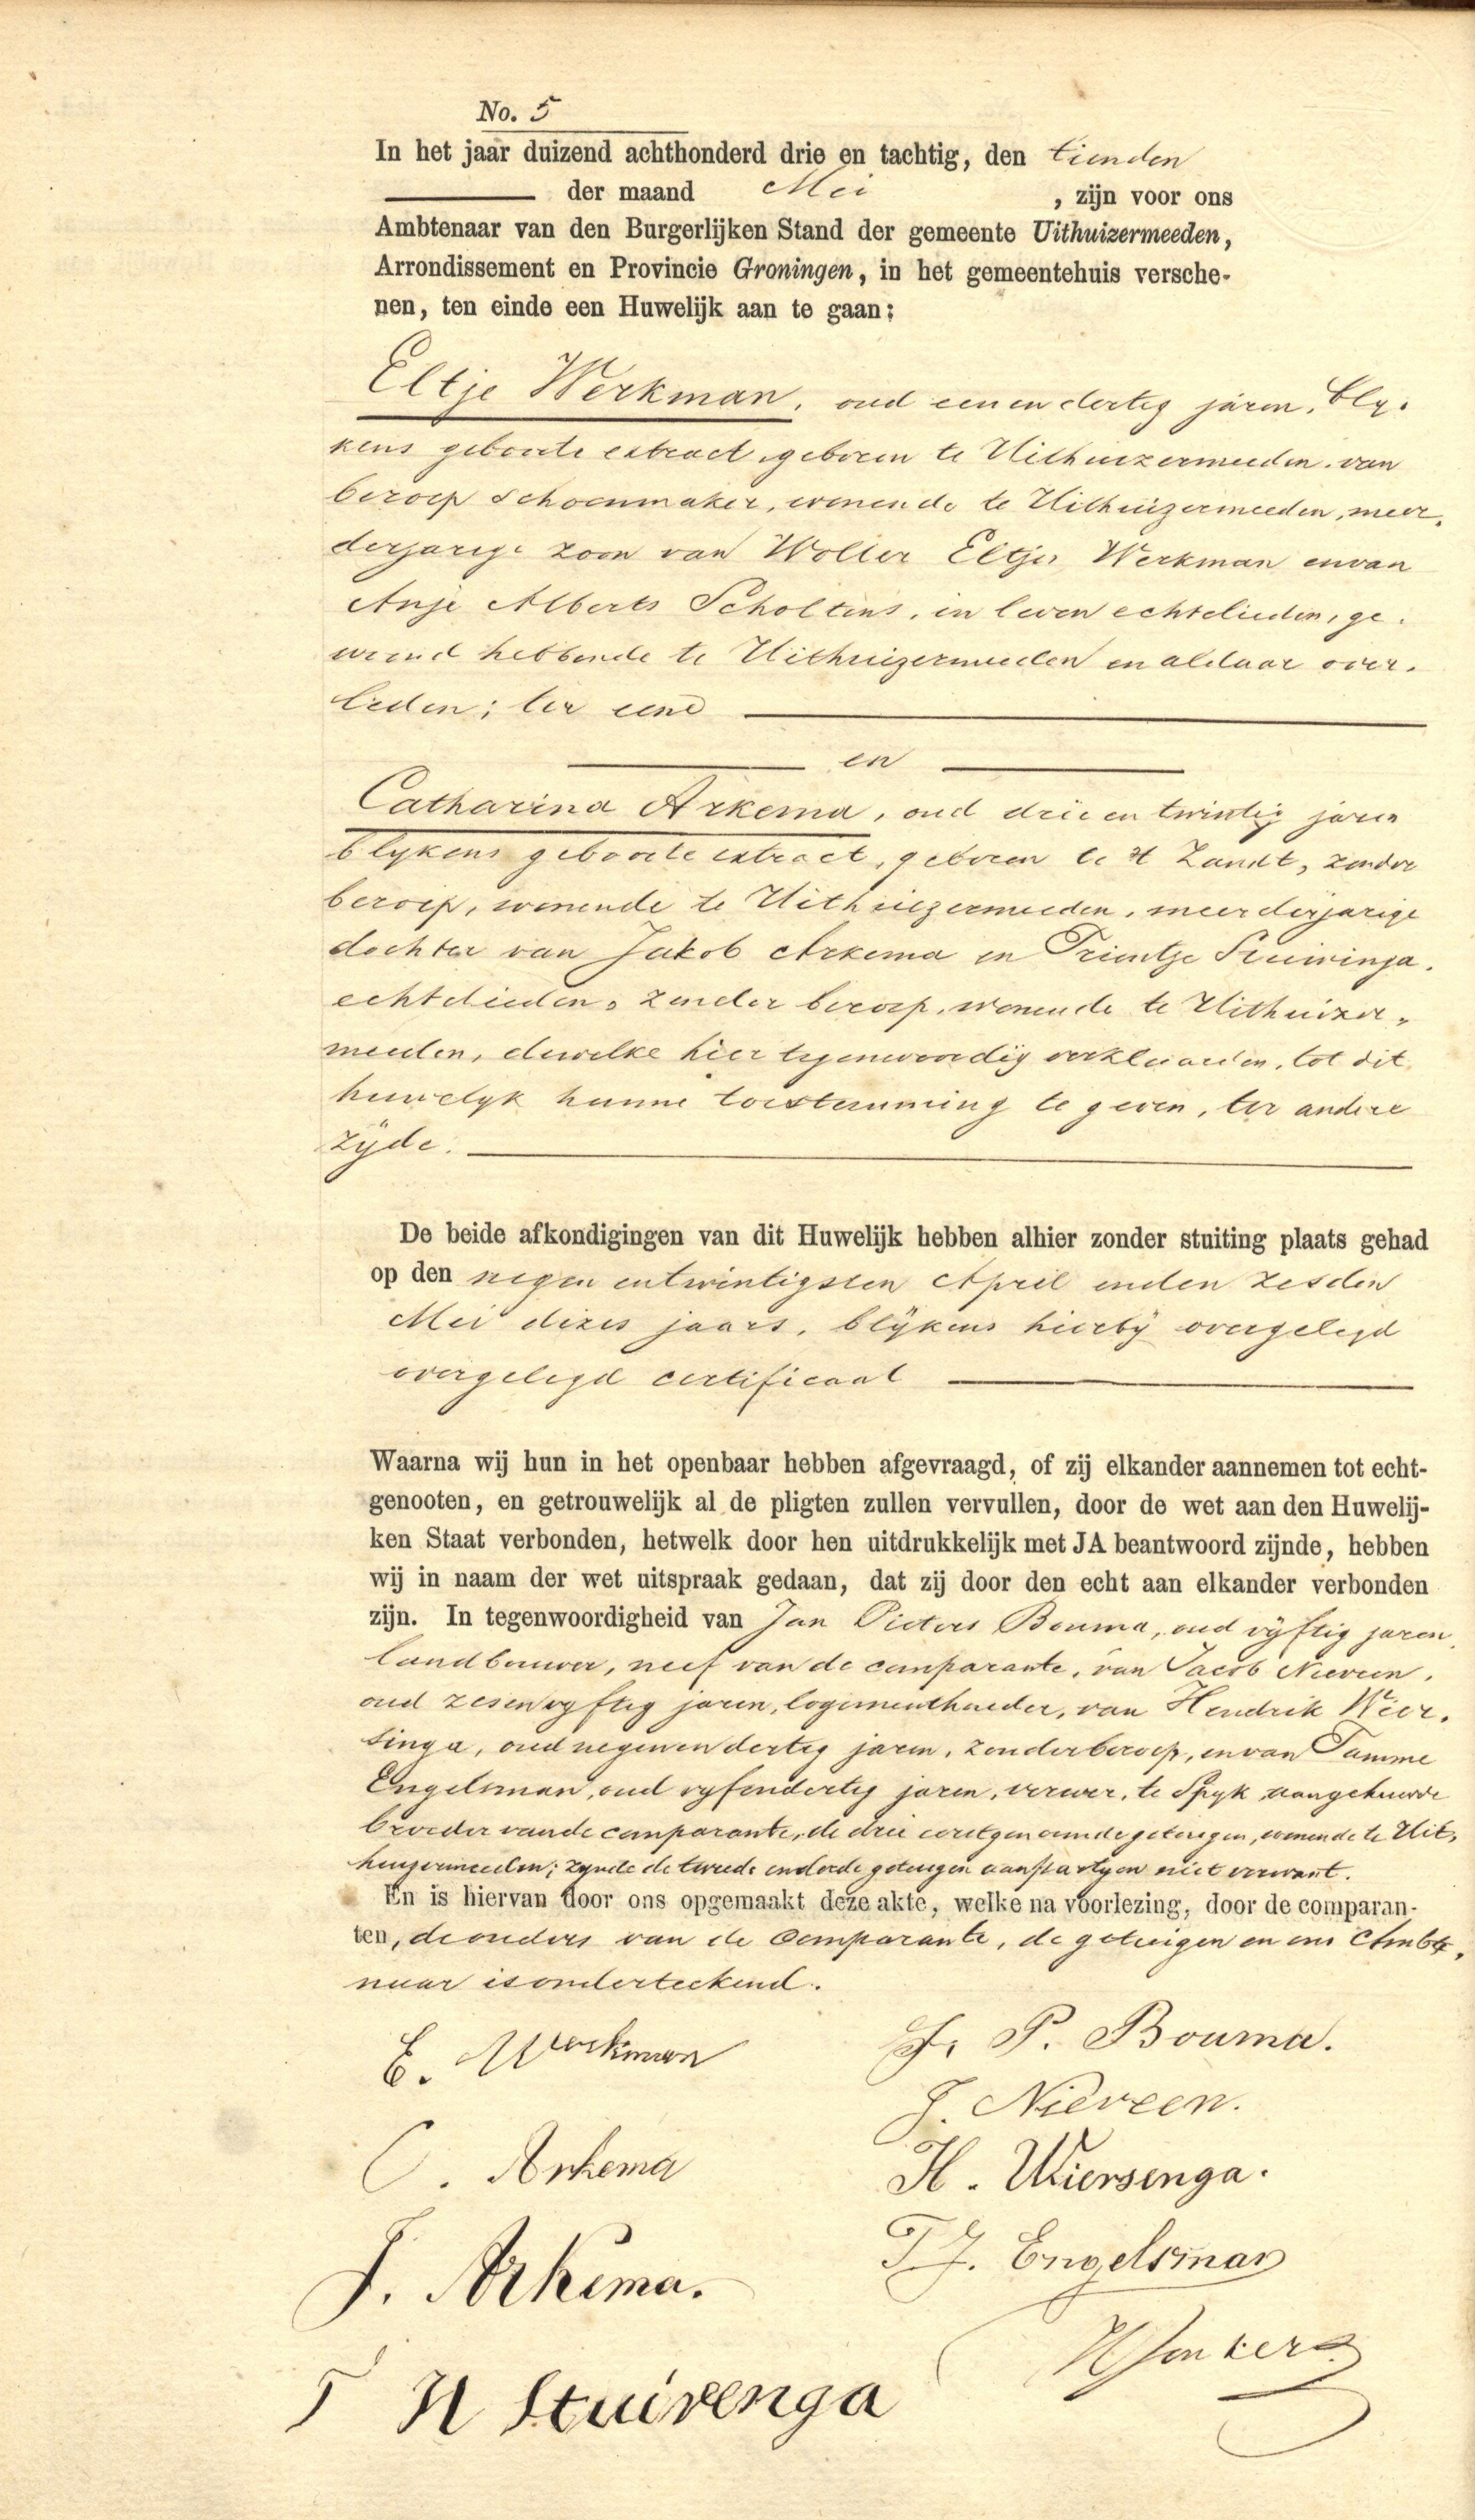 No. 5
In het jaar duizend achthonderd drie en tachtig, den tienden
der maand Mei , zijn voor ons
Ambtenaar van den Burgerlijken Stand der gemeente Uithuizermeeden,
Arrondissement en Provincie Groningen, in het gemeentehuis versche-
nen, ten einde een Huwelijk aan te gaan:
Eltje Werkman, oud een en dertig jaren, bly-
kens geboorte extract geboren te Uithuizermeeden, van
beroep schoenmaker, wonende te Uithuizermeeden, meer-
derjarige zoon van Wolter Eltjes Werkman en van
Anje Alberts Scholtens, in leven echtelieden, ge-
woond hebbende te Uithuizermeeden en aldaar over-
leden; ter eene
en
Catharina Arkema, oud drie en twintig jaren
blykens geboorte extract, geboren te 't Zandt, zonder
beroep, wonende te Uithuizermeeden, meerderjarige
dochter van Jakob Arkema en Trientje Stuivinga,
echtelieden, zonder beroep, wonende te Uithuizer-
meeden, dewelke hier tegenwoordig verklaarden, tot dit
huwelyk hunne toestemming te geven, ter andere
zijde.
De beide afkondigingen van dit Huwelijk hebben alhier zonder stuiting plaats gehad
op den negen en twintigsten April en den zesden
Mei dezes jaars, blijkens hierbij overgelegd
overgelegd certificaat
Waarna wij hun in het openbaar hebben afgevraagd, of zij elkander aannemen tot echt-
genooten, en getrouwelijk al de pligten zullen vervullen, door de wet aan den Huwelij-
ken Staat verbonden, hetwelk door hen uitdrukkelijk met JA beantwoord zijnde, hebben
wij in naam der wet uitspraak gedaan, dat zij door den echt aan elkander verbonden
zijn. In tegenwoordigheid van Jan Pieters Bouma, oud vijftig jaren,
landbouwer, neef van de comparante, van Jacob Nieveen,
oud zesenvyftig jaren, logementhouder, van Hendrik Wier-
singa, oud negenendertig jaren, zonder beroep, en van Tamme
Engelsman, oud vyfendertig jaren, verwer, te Spyk, aangehuwde
broeder van de comparante, de drie eerstgenoemde getuigen, wonende te Uit-
huizermeeden; zynde de tweede en derde getuigen aan partyen niet verwant.
En is hiervan door ons opgemaakt deze akte, welke na voorlezing, door de comparan-
ten, de ouders van de comparante, de getuigen en ons Ambte-
naar is onderteekend.
E. Werkman
J. P. Bouma.
J. Nieveen.
C. Arkema
H. Wiersenga.
J. Arkema.
T J. Engelsman
T H Stuivenga